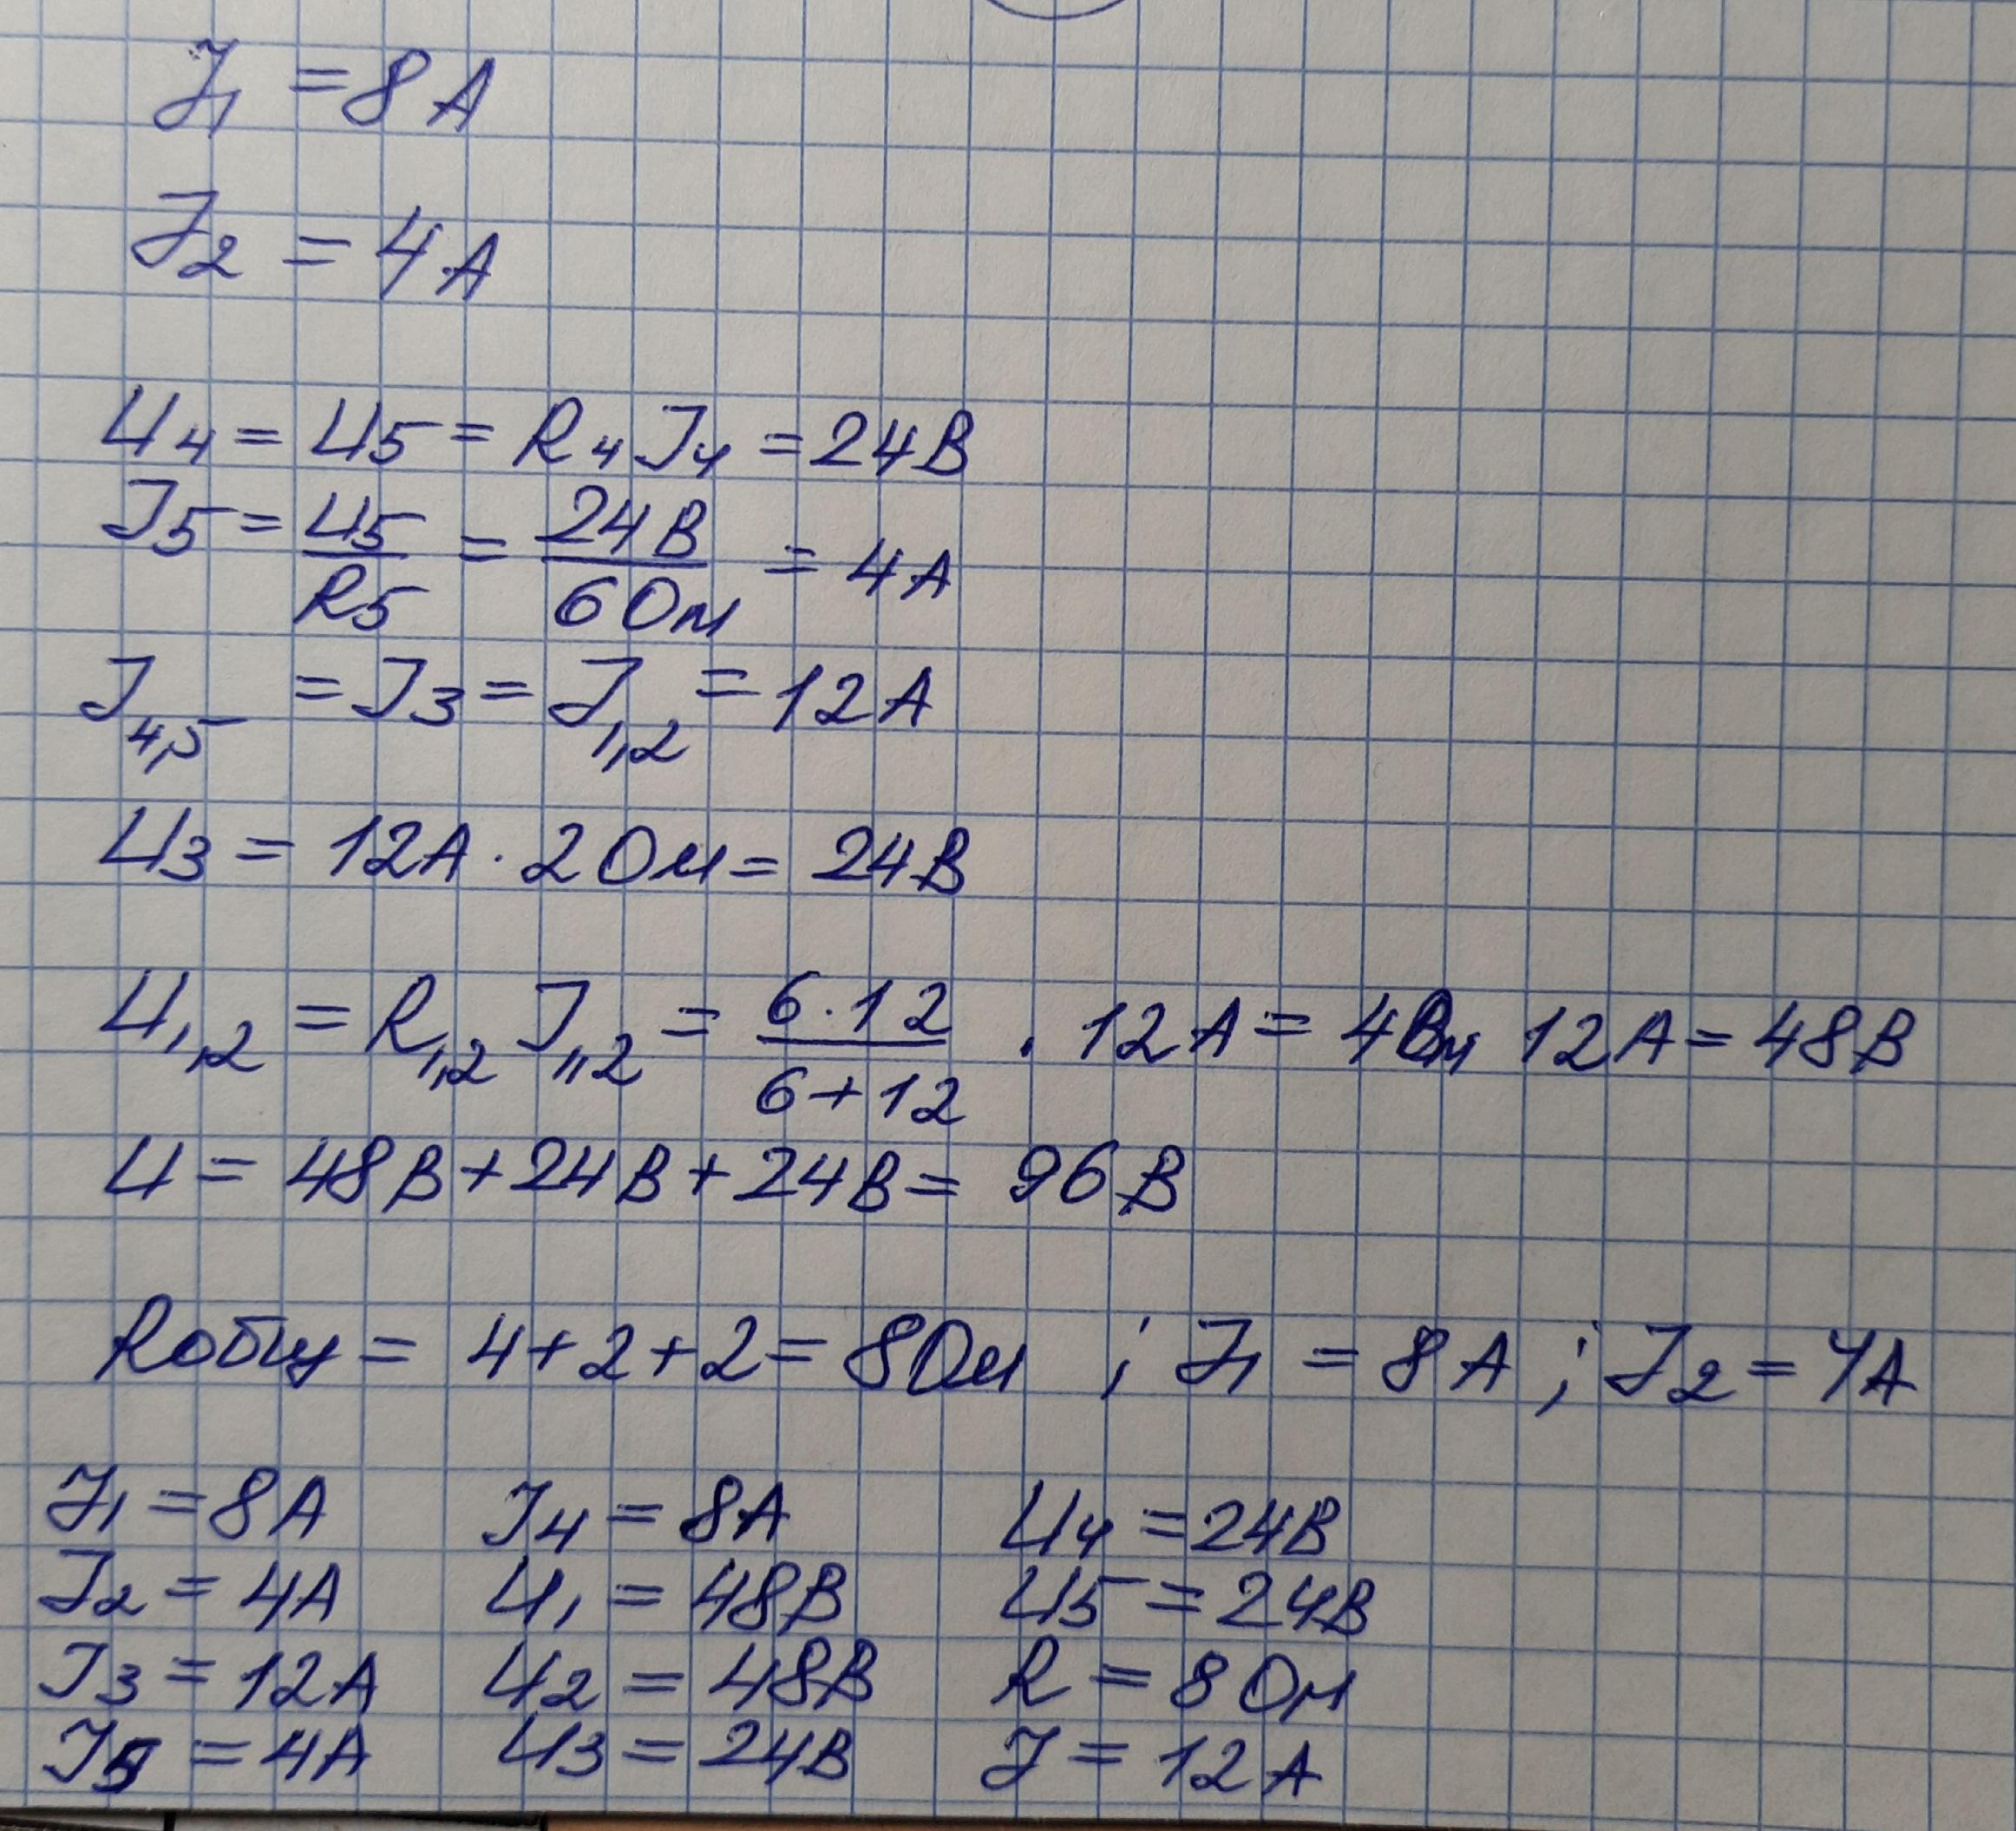 I₁ = 8 A
I₂ = 4 A
U₄ = U₅ = R₄ I₄ = 24 В
I₅ = U₅/R₅ = 24 В/6 Ом = 4 А
I₄,₅ = I₃ = I₁,₂ = 12 А
U₃ = 12 А · 2 Ом = 24 В
U₁,₂ = R₁,₂ I₁,₂ = 6·12/6+12 · 12 А = 4 Ом 12 А = 48 В
U = 48 В + 24 В + 24 В = 96 В
Rобщ = 4 + 2 + 2 = 8 Ом ; I₁ = 8 А ; I₂ = 4 А
I₁ = 8 А I₄ = 8 А U₄ = 24 В
I₂ = 4 А U₁ = 48 В U₅ = 24 В
I₃ = 12 А U₂ = 48 В R = 8 Ом
I₅ = 4 А U₃ = 24 В I = 12 А